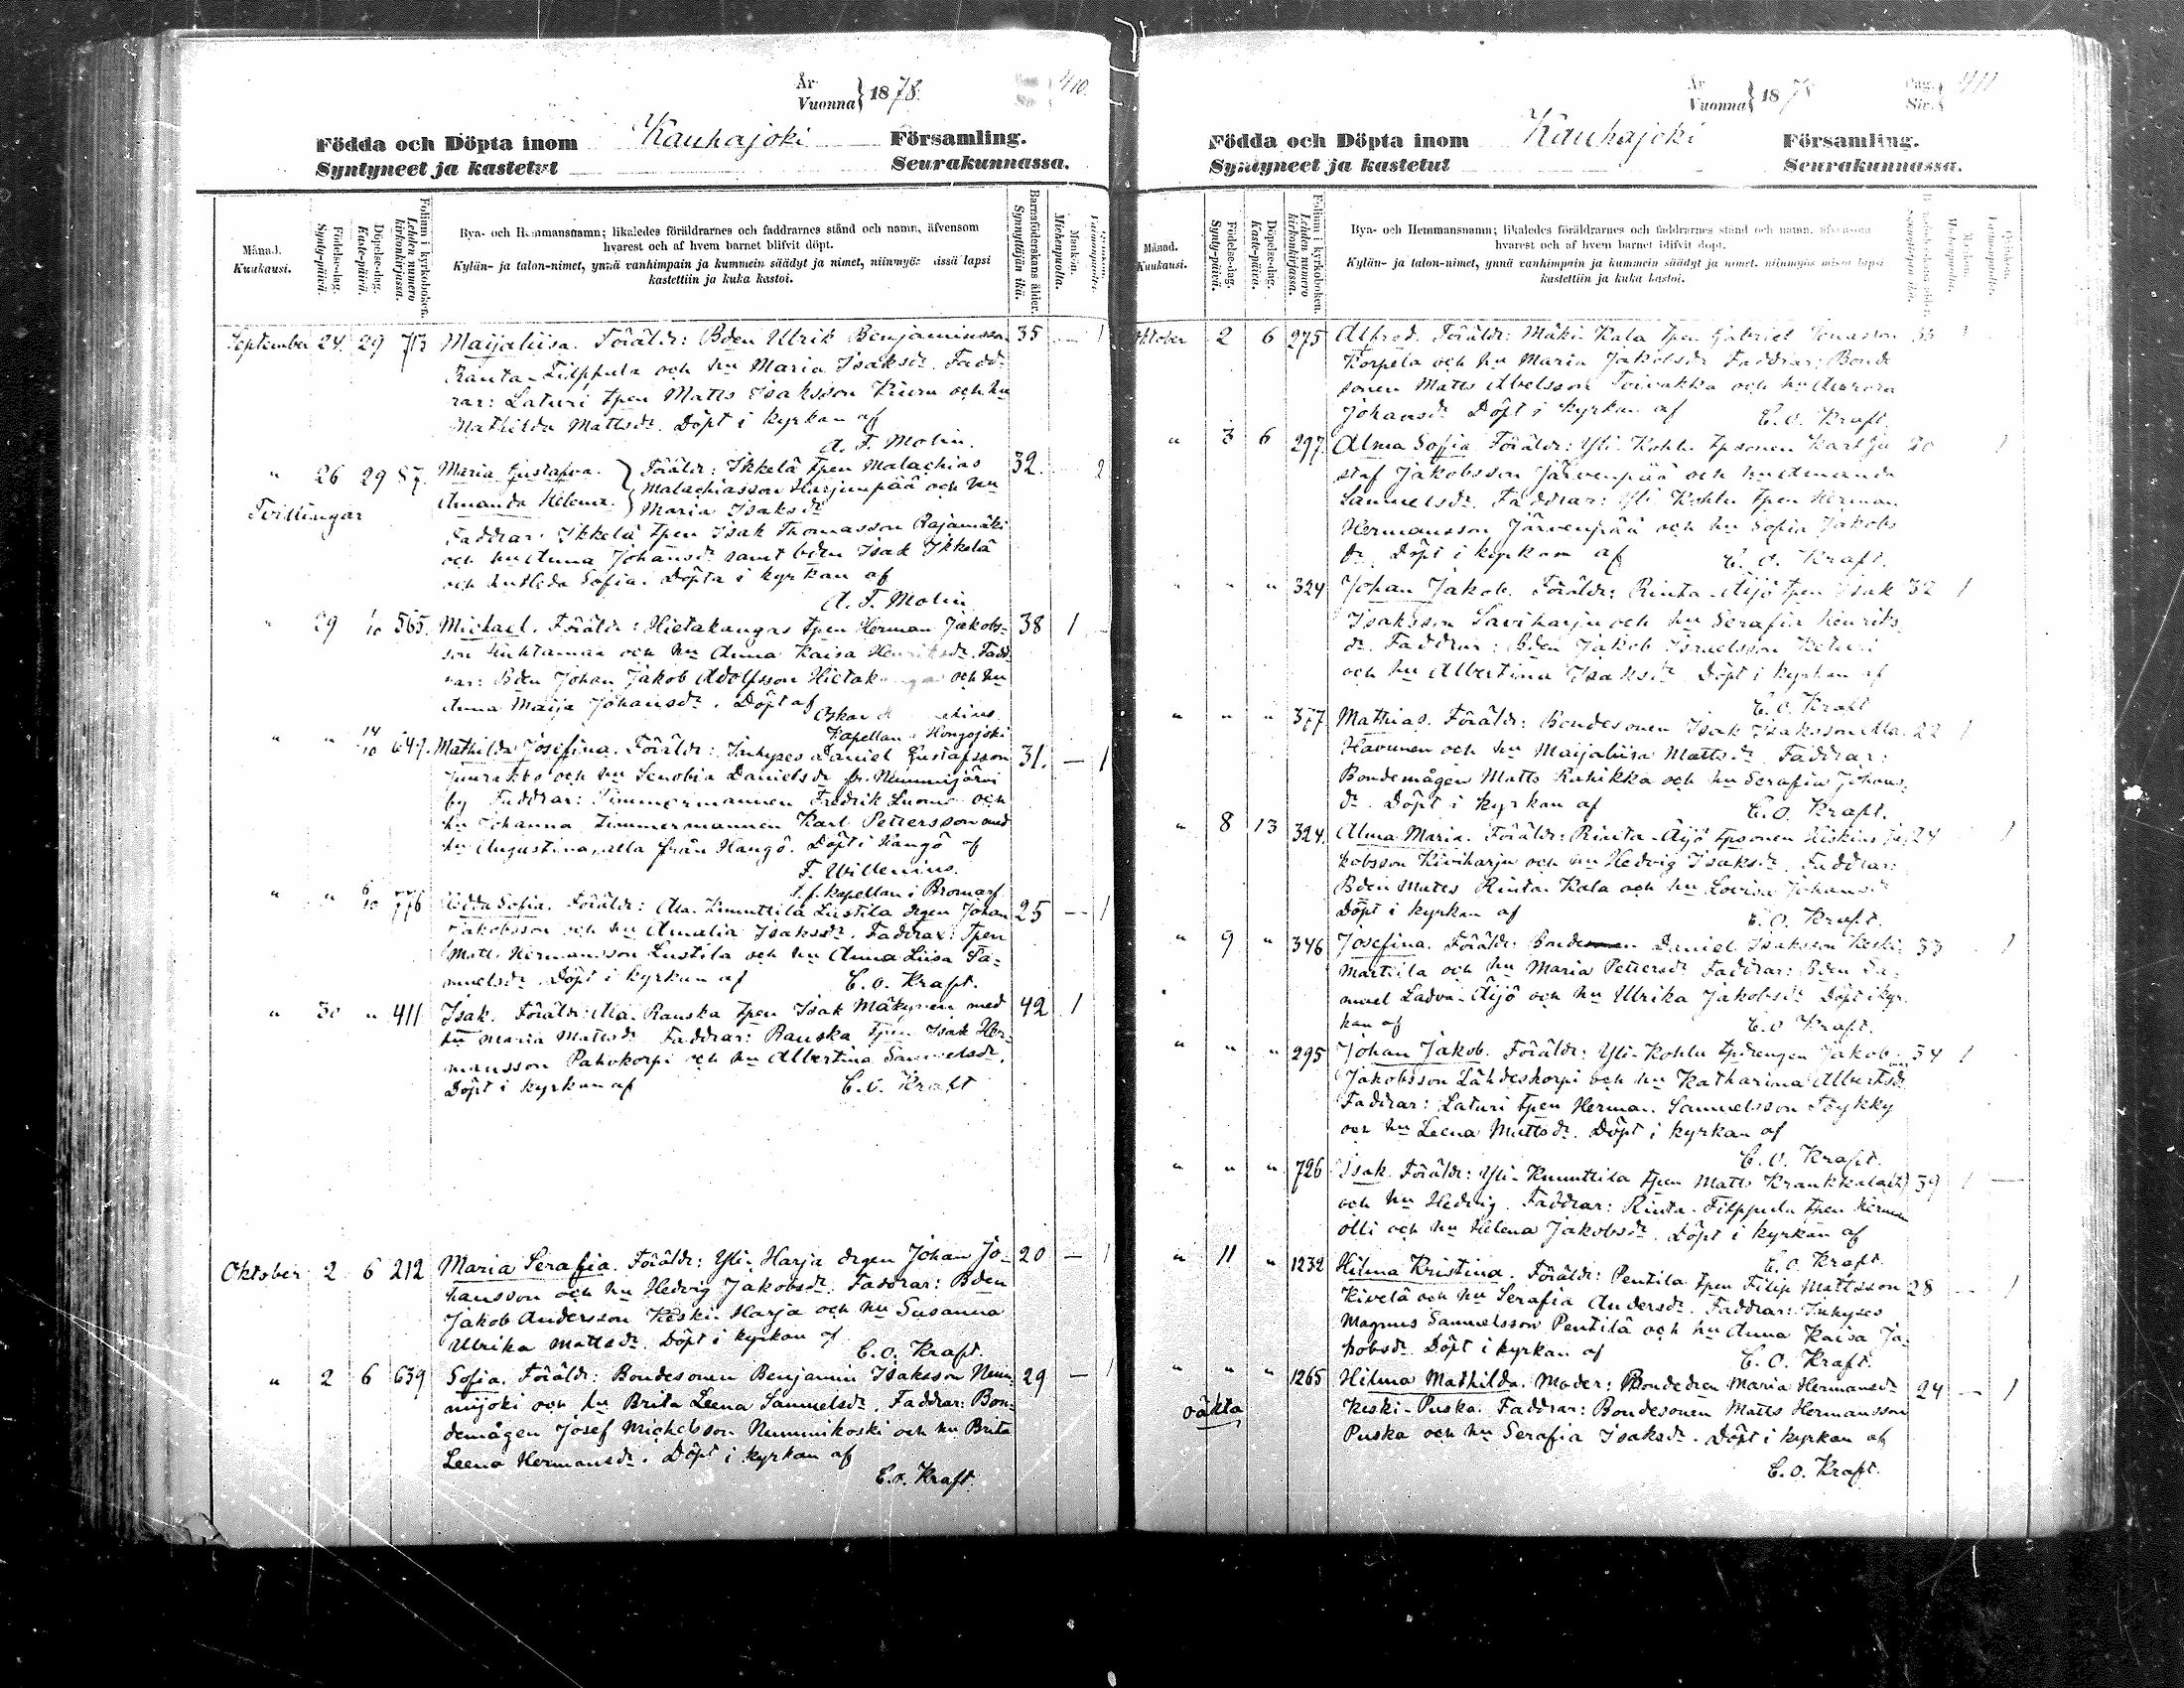 År
Vuonna } 1878.
410.
Födda och Döpta inom Kauhajoki Församling.
Syntyneet ja kastetut Seurakunnassa.
Månad.
Kuukausi.
Födelse-dag.
Synty-päivä.
Döpelse-dag.
Kaste-päivä.
Folium i kyrkoboken.
Lehden numero kirkonkirjassa.
Bya- och Hemmansnamn; likaledes föräldrarnes och faddrarnes stånd och namn, äfvensom
hvarest och af hvem barnet blifvit döpt.
Kylän- ja talon-nimet, ynnä vanhimpain ja kummein säädyt ja nimet, niinmyös missä lapsi
kastettiin ja kuka kastoi.
Barnaföderskans ålder.
Synnyttäjän ikä.
Mankön.
Miehenpuolia.
September 24. 29 713 Maijaliisa. Föräldr: Bden Ulrik Benjaminsson 35 — 1
Ranta-Filppula och hu Maria Isaksdr. Fadd-
rar: Laturi tpen Matts Isaksson Kiuru och hu
Mathilda Mattsdr. Döpt i kyrkan af
A. F. Molin.
" 26 29 87. Maria Gustafva. } Föräldr: Ikkelä tpen Malachias 32. 2
Amanda Helena. } Malachiasson Harjunpää och hu
Maria Isaksdr
Tvillingar
Faddrar: Ikkelä tpen Isak Thomasson Rajamäki
och hu Anna Johansdr samt bden Isak Ikkelä
och Sofia. Döpta i kyrkan af
A. F. Molin
" 29 1/10 565. Michael. Föräldr: Hietakangas tpen Herman Jakobs- 38 1
son Huhtamaa och hu Anna Kaisa Henriksdr. Fadd-
rar: Bden Johan Jakob Adolfsson och hu
Anna Maija Johansdr. Döpt af
Oskar
Kapellan i Hongojoki
" " 14/10 647. Mathilda Josefina. Föräldr: Inhyses Daniel Gustafsson 31. — 1
Juurakko och hu Senobia Danielsdr fr. Nummijärvi
by Faddrar: Timmermannen Fredrik Luoma och
hu Johanna Timmermannen Karl Pettersson med
hu Augustina, alla från Hangö. Döpt i Hangö af
F. Willenius.
t. f. kapellan i Bromarf
" " 6/10 776 Hedda Sofia. Föräldr: Ala. Knuuttila Lustila drgen Johan 25 — 1
Jakobsson och hu Amalia Isaksdr. Faddrar: tpen
Matts Hermansson Lustila och hu Anna Liisa Sa-
muelsdr. Döpt i kyrkan af C. O. Kraft.
" 30 " 411 Isak. Föräldr: Ala. Rauska tpen Isak Mäkynen med 42 1
hu Maria Mattsdr. Faddrar: Rauska tpen Isak Her-
mansson Pahokorpi och hu Albertina Samuelsdr.
Döpt i kyrkan af C. O. Kraft
Oktober 2 6 212 Maria Serafia. Föräldr: Yli-Harja drgen Johan Jo- 20 — 1
hansson och hu Hedvig Jakobsdr. Faddrar: Bden
Jakob Andersson Keski-Harja och hu Susanna
Ulrika Mattsdr. Döpt i kyrkan af
C. O. Kraft.
" 2 6 639 Sofia. Föräldr: Bondesonen Benjamin Isaksson Num- 29 — 1
mijoki och hu Brita Leena Samuelsdr. Faddrar: Bon-
demågen Josef Michelsson Nummikoski och hu Brita
Leena Hermansdr. Döpt i kyrkan af
C. O. Kraft.
År
Vuonna } 1878
Pag.
Siv. } 411
Födda och Döpta inom Kauhajoki Församling.
Syntyneet ja kastetut Seurakunnassa.
Månad.
Kuukausi.
Födelse-dag.
Synty-päivä.
Döpelse-dag.
Kaste-päivä.
Folium i kyrkoboken.
Lehden numero kirkonkirjassa.
Bya- och Hemmansnamn; likaledes föräldrarnes och faddrarnes stånd och namn, äfvensom
hvarest och af hvem barnet blifvit döpt.
Kylän- ja talon-nimet, ynnä vanhimpain ja kummein säädyt ja nimet, niinmyös missä lapsi
kastettiin ja kuka kastoi.
Oktober 2 6 275 Alfred. Föräldr: Mäki-Kala tpen Gabriel Jonasson 33 1
Korpela och hu Maria Jakobsdr Faddrar: Bonde
sonen Matts Abelsson Toivakka och hu Aurora
Johansdr Döpt i kyrkan af C. O. Kraft.
" 3 6 297 Alma Sofia. Föräldr: Yli-Kohlu tpsonen Karl Gu 20 1
staf Jakobsson Järvenpää och hu Amanda
Samuelsdr. Faddrar: Yli Kohlu tpen Herman
Hermansson Järvenpää och hu Sofia Jakobs
dr. Döpt i kyrkan af C. O. Kraft.
" " " 324 Johan Jakob. Föräldr: Rinta-Äijö tpen Isak 32 1
Isaksson Saviharju och hu Serafia Henriks
dr. Faddrar: Bden Jakob Israelsson Keturi
och hu Albertina Isaksdr. Döpt i kyrkan af
C. O. Kraft
" " " 377 Mathias. Föräldr: Bondesonen Isak Isaksson Ala- 22 1
Havunen och hu Maijaliisa Mattsdr. Faddrar:
Bondemågen Matts Rahikka och hu Serafia Johans-
dr. Döpt i kyrkan af C. O. Kraft.
" 8 13 324. Alma Maria. Föräldr: Rinta-Äijö tpsonen Hiskias Ja- 24 1
kobsson Kiviharju och hu Hedvig Isaksdr. Faddrar:
Bden Matts Rinta-Kala och hu Lovisa Johansdr
Döpt i kyrkan af C. O. Kraft.
" 9 " 346 Josefina. Föräldr: Daniel Isaksson Keski- 33 1
Marttila och hu Maria Pettersdr Faddrar: Bden Sa-
muel Ladva-Äijö och hu Ulrika Jakobsdr Döpt i kyr-
kan af C. O. Kraft.
" " " 295 Johan Jakob. Föräldr: Yli-Kohlu tpdrengen Jakob 34 1
Jakobsson Lähdeskorpi och hu Katharina Albertsdr.
Faddrar: Laturi tpen Herman Samuelsson Töykky
och hu Leena Mattsdr. Döpt i kyrkan af
C. O. Kraft.
" " " 726 Isak. Föräldr: Yli-Knuuttila tpen Matts Krankkala 39 1 —
och hu Hedvig. Faddrar: Rinta-Filppula tpen Herman
Olli och hu Helena Jakobsdr. Döpt i kyrkan af
C. O. Kraft.
" 11 " 1232 Hilma Kristina. Föräldr: Pentilä tpen Filip Mattsson 28 — 1
Kivelä och hu Serafia Andersdr. Faddrar: Inhyses
Magnus Samuelsson Pentilä och hu Anna Kaisa Ja-
kobsdr. Döpt i kyrkan af C. O. Kraft.
" " " 1265 Hilma Mathilda. Moder: Bondedren Maria Hermansdr 24 — 1
oäkta Keski-Puska. Faddrar: Bondesonen Matts Hermansson
Puska och hu Serafia Isaksdr. Döpt i kyrkan af
C. O. Kraft.